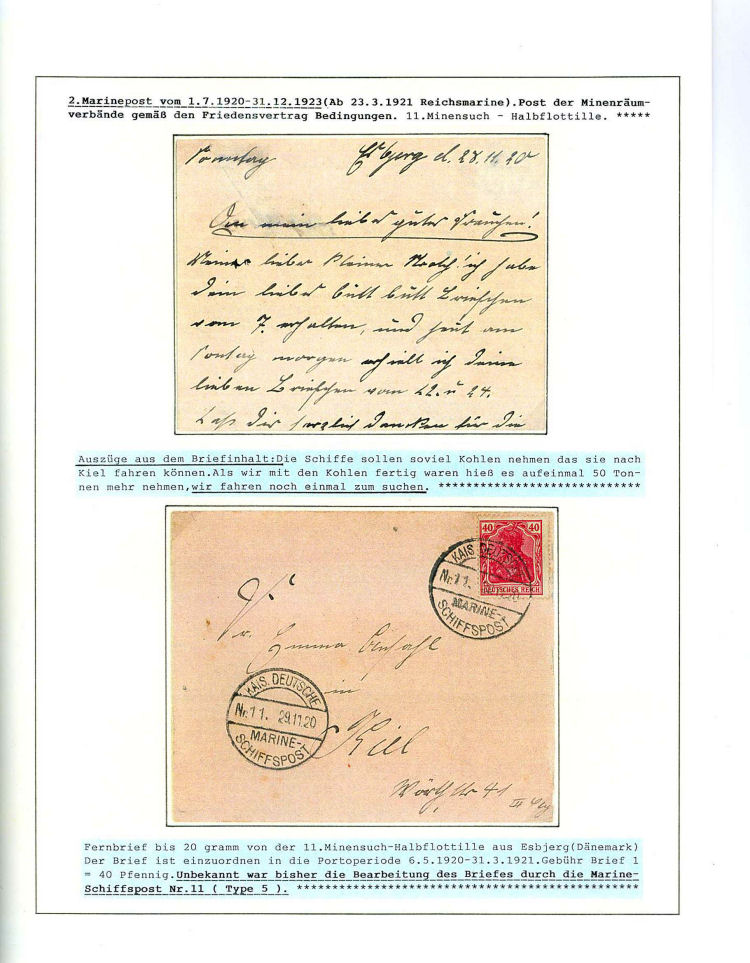 2.Marinepost vom 1.7.1920-31.12.1923(Ab 23.3.1921 Reichsmarine).Post der Minenräum-
verbände gemäß den Friedensvertrag Bedingungen. 11.Minensuch - Halbflottille. *****
Sonntag Esbjerg d. 28.11.20
An mein liebes gutes Frauchen!
Meine liebe kleine ich habe
Dein liebes Briefchen
vom 7. erhalten, und heut am
Sontag morgen erhielt ich deine
lieben Briefchen vom 22. u 24.
Laß dir herzlich danken für die
Auszüge aus dem Briefinhalt:Die Schiffe sollen soviel Kohlen nehmen das sie nach
Kiel fahren können.Als wir mit den Kohlen fertig waren hieß es aufeinmal 50 Ton-
nen mehr nehmen,wir fahren noch einmal zum suchen. *****************************
40 40
DEUTSCHES REICH
KAIS. DEUTSCHE
Nr.11.
MARINE-
SCHIFFSPOST
Fr. Emma
in
Kiel
KAIS. DEUTSCHE
Nr.11. 29.11.20
MARINE-
SCHIFFSPOST
41
III
Fernbrief bis 20 gramm von der 11.Minensuch-Halbflottille aus Esbjerg(Dänemark)
Der Brief ist einzuordnen in die Portoperiode 6.5.1920-31.3.1921.Gebühr Brief 1
= 40 Pfennig.Unbekannt war bisher die Bearbeitung des Briefes durch die Marine-
Schiffspost Nr.11 ( Type 5 ). *************************************************